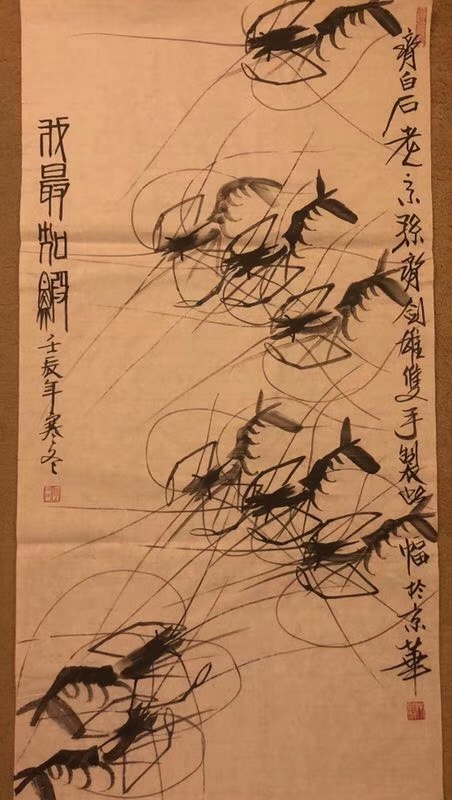 齊白石老孫齊剑雄雙手製此幅於京華
我最知鰕
壬辰年寒冬